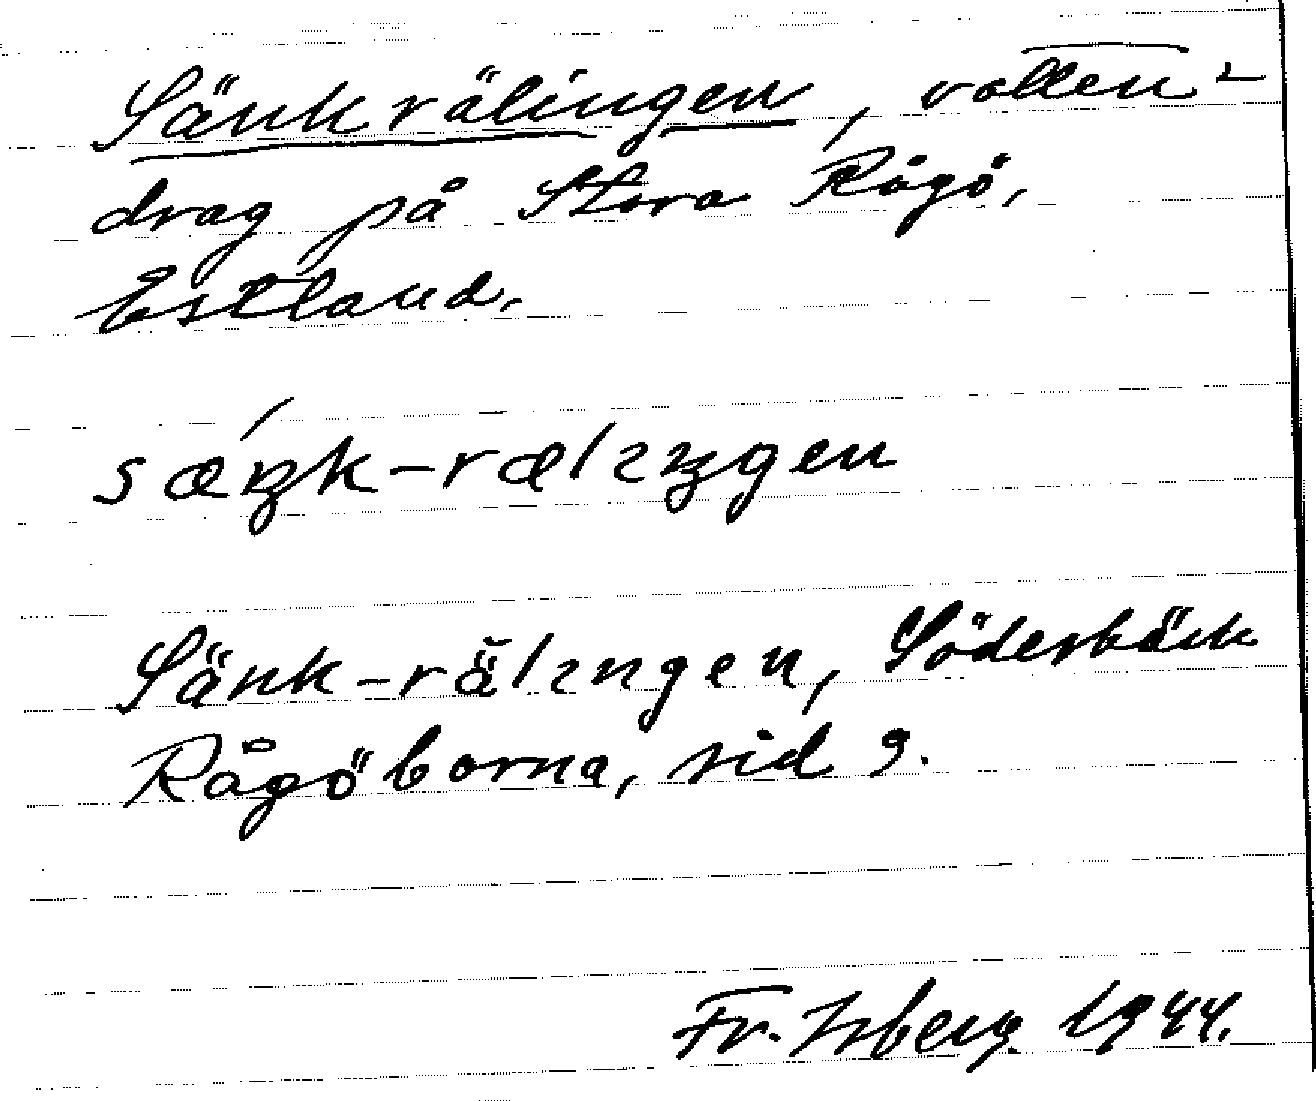 Sänkrälingen, vatten-
drag på Stora Rågö,
Estland.
sǽŋk-rælıŋgen
Sänk-rälıngen, Söderbäck
Rågöborna, sid 9.
Fr. Isberg 1944.